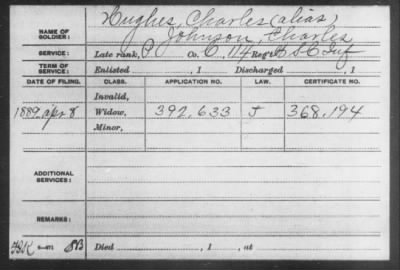 Hughes, Charles (alias)
NAME OF SOLDIER: Johnson, Charles
SERVICE: Late rank, P Co. C, 114 Reg't U S C Inf
TERM OF SERVICE: Enlisted , 1 Discharged , 1
DATE OF FILING. CLASS. APPLICATION NO. LAW. CERTIFICATE NO.
Invalid,
1889 Apr 8 Widow, 392,633 J 368,194
Minor,
ADDITIONAL SERVICES:
REMARKS:
Died , 1 , at